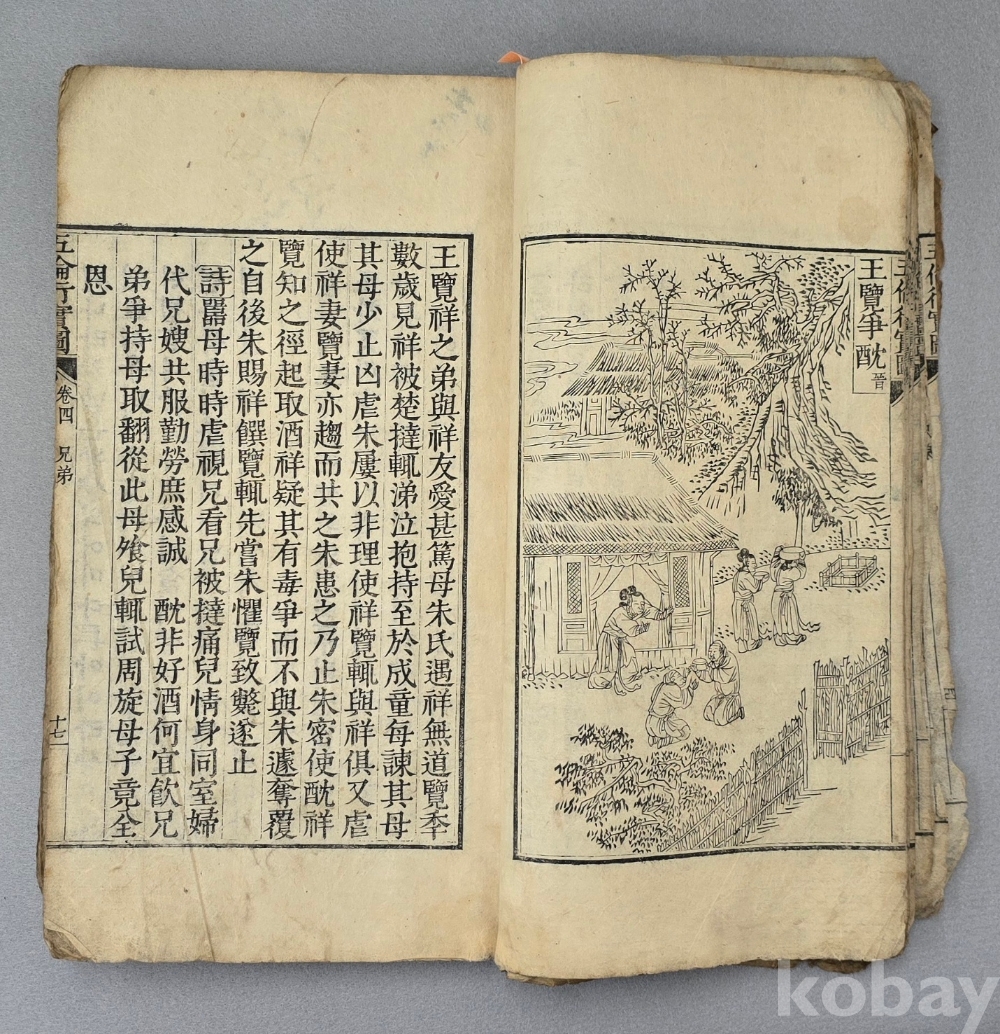 王覽爭酖 晉
王覽祥之弟與祥友愛甚篤母朱氏遇祥無道覽年
數歲見祥被楚撻輒涕泣抱持至於成童每諫其母
其母少止凶虐朱屢以非理使祥覽輒與祥俱又虐
使祥妻覽妻亦趨而共之朱患之乃止朱密使酖祥
覽知之徑起取酒祥疑其有毒爭而不與朱遽奪覆
之自後朱賜祥饌覽輒先嘗朱懼覽致斃遂止
詩嚚母時時虐視兄看兄被撻痛兒情身同室婦
代兄嫂共服勤勞庶感誠 酖非好酒何宜飮兄
弟爭持母取翻從此母飱兒輒試周旋母子竟全
恩
五倫行實圖 卷四 兄弟 十七
kobay